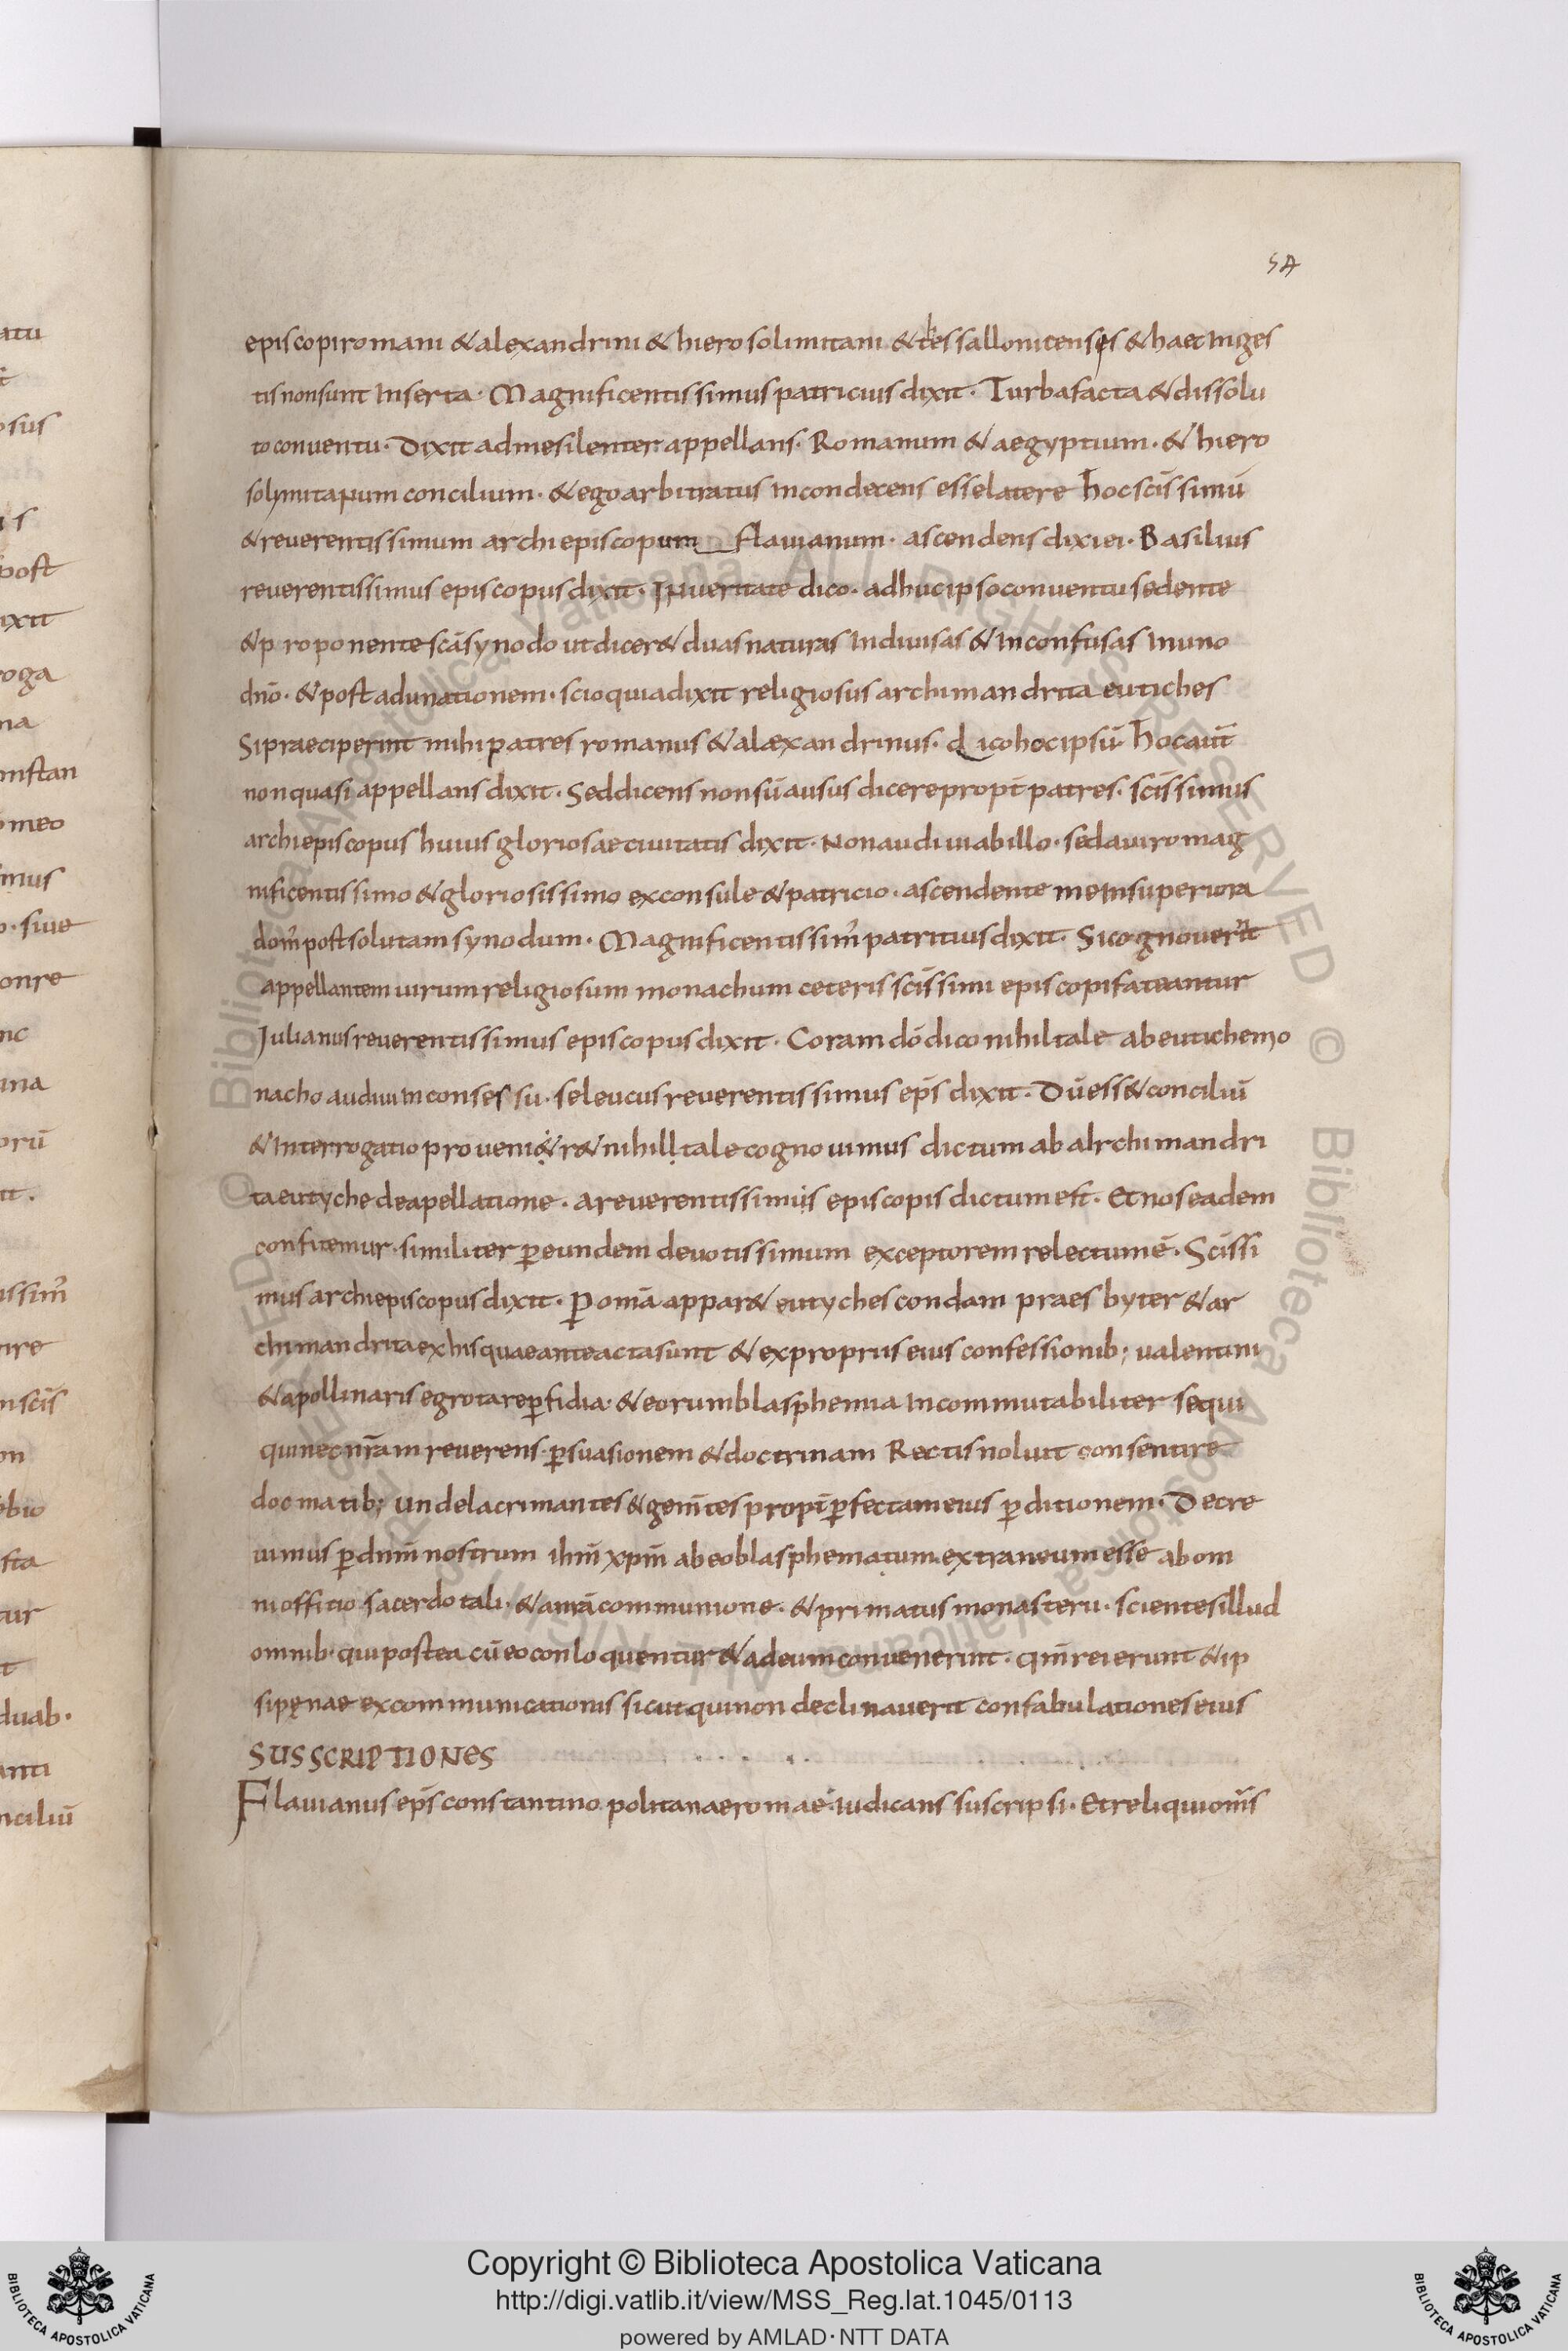 54
episcopi romani & alexandrini & hierosolimitani & thessallonitenses & haec In ges
tis non sunt Inserta · Magnificentissimus patricius dixit · Turba facta & dissolu
to conventu · Dixit ad me silenter appellans · Romanum & aegyptium · & hiero
solymitanum concilium · & ego arbitratus Incondecens esse latere hoc scīssimū
& reuerentissimum archiepiscopum flauianum · ascendens dixi ei · Basilius
reuerentissimus episcopus dixit · In ueritate dico · adhuc ipso conuentu sedente
& proponente scā synodo ut dicer& duas naturas Indiuisas & Inconfusas In uno
dnō · & post adunationem · scio quia dixit religiosus archimandrita eutiches
Si praeciperint mihi patres romanus & alæxandrinus · dico hoc ipsū hoc aūt
non quasi appellans dixit · Sed dicens non sū ausus dicere propt̄ patres · scīssimus
archiepiscopus huius gloriosae ciuitatis dixit · Non audiui ab illo · sed a uiro mag
nificentissimo & gloriosissimo exconsule & patricio · ascendente me In superiora
dom̄ post solutam synodum · Magnificentissim̄ patritius dixit · Si cognouer̄it
appellantem uirum religiosum monachum ceteri scīssimi episcopi fateantur
Julianus reuerentissimus episcopus dixit · Coram dō dico nihil tale ab eutiche mo
nacho audiui In consessu · seleucus reuerentissimus ep̄s dixit · Dū ess& conciliū
& Interrogatio proueni&r& nihill tale cognouimus dictum ab alrchimandri
ta eutyche de apellatione · a reuerentissimis episcopis dictum est · Et nos eadem
confitemur · similiter p̄ eundem deuotissimum exceptorem relectum ē · Scīssi
mus archiepiscopus dixit · P̄ omā appar& eutyches condam praesbyter & ar
chimandrita ex his quae ante acta sunt & ex propriis eius confessionib; ualentini
& apollinaris egrotare p̄fidia · & eorum blasphemia Incommutabiliter sequi
qui nec nr̄am reuerens · p̄suasionem & doctrinam Rectis noluit consentire
docmatib; unde lacrimantes & gem̄tes propt̄ p̄fectam eius p̄ditionem · Decre
uimus p̄ dnm̄ nostrum ihm̄ xpm̄ ab eo blasphematum extraneum esse ab om
ni offitio sacerdotali · & a nrā communione · & primatus monasterii · scientes illud
omnib· qui postea cū eo conloquentur & ad eum conuenerint · qm̄ rei erunt & ip
si pęnae excommunicationis sicut qui non declinauerit confabulationes eius
SUSSCRIPTIONES
Flauianus ep̄s constantinopolitanae romae iudicans suscripsi · Et reliqui om̄s
Copyright © Biblioteca Apostolica Vaticana
http://digi.vatlib.it/view/MSS_Reg.lat.1045/0113
powered by AMLAD·NTT DATA